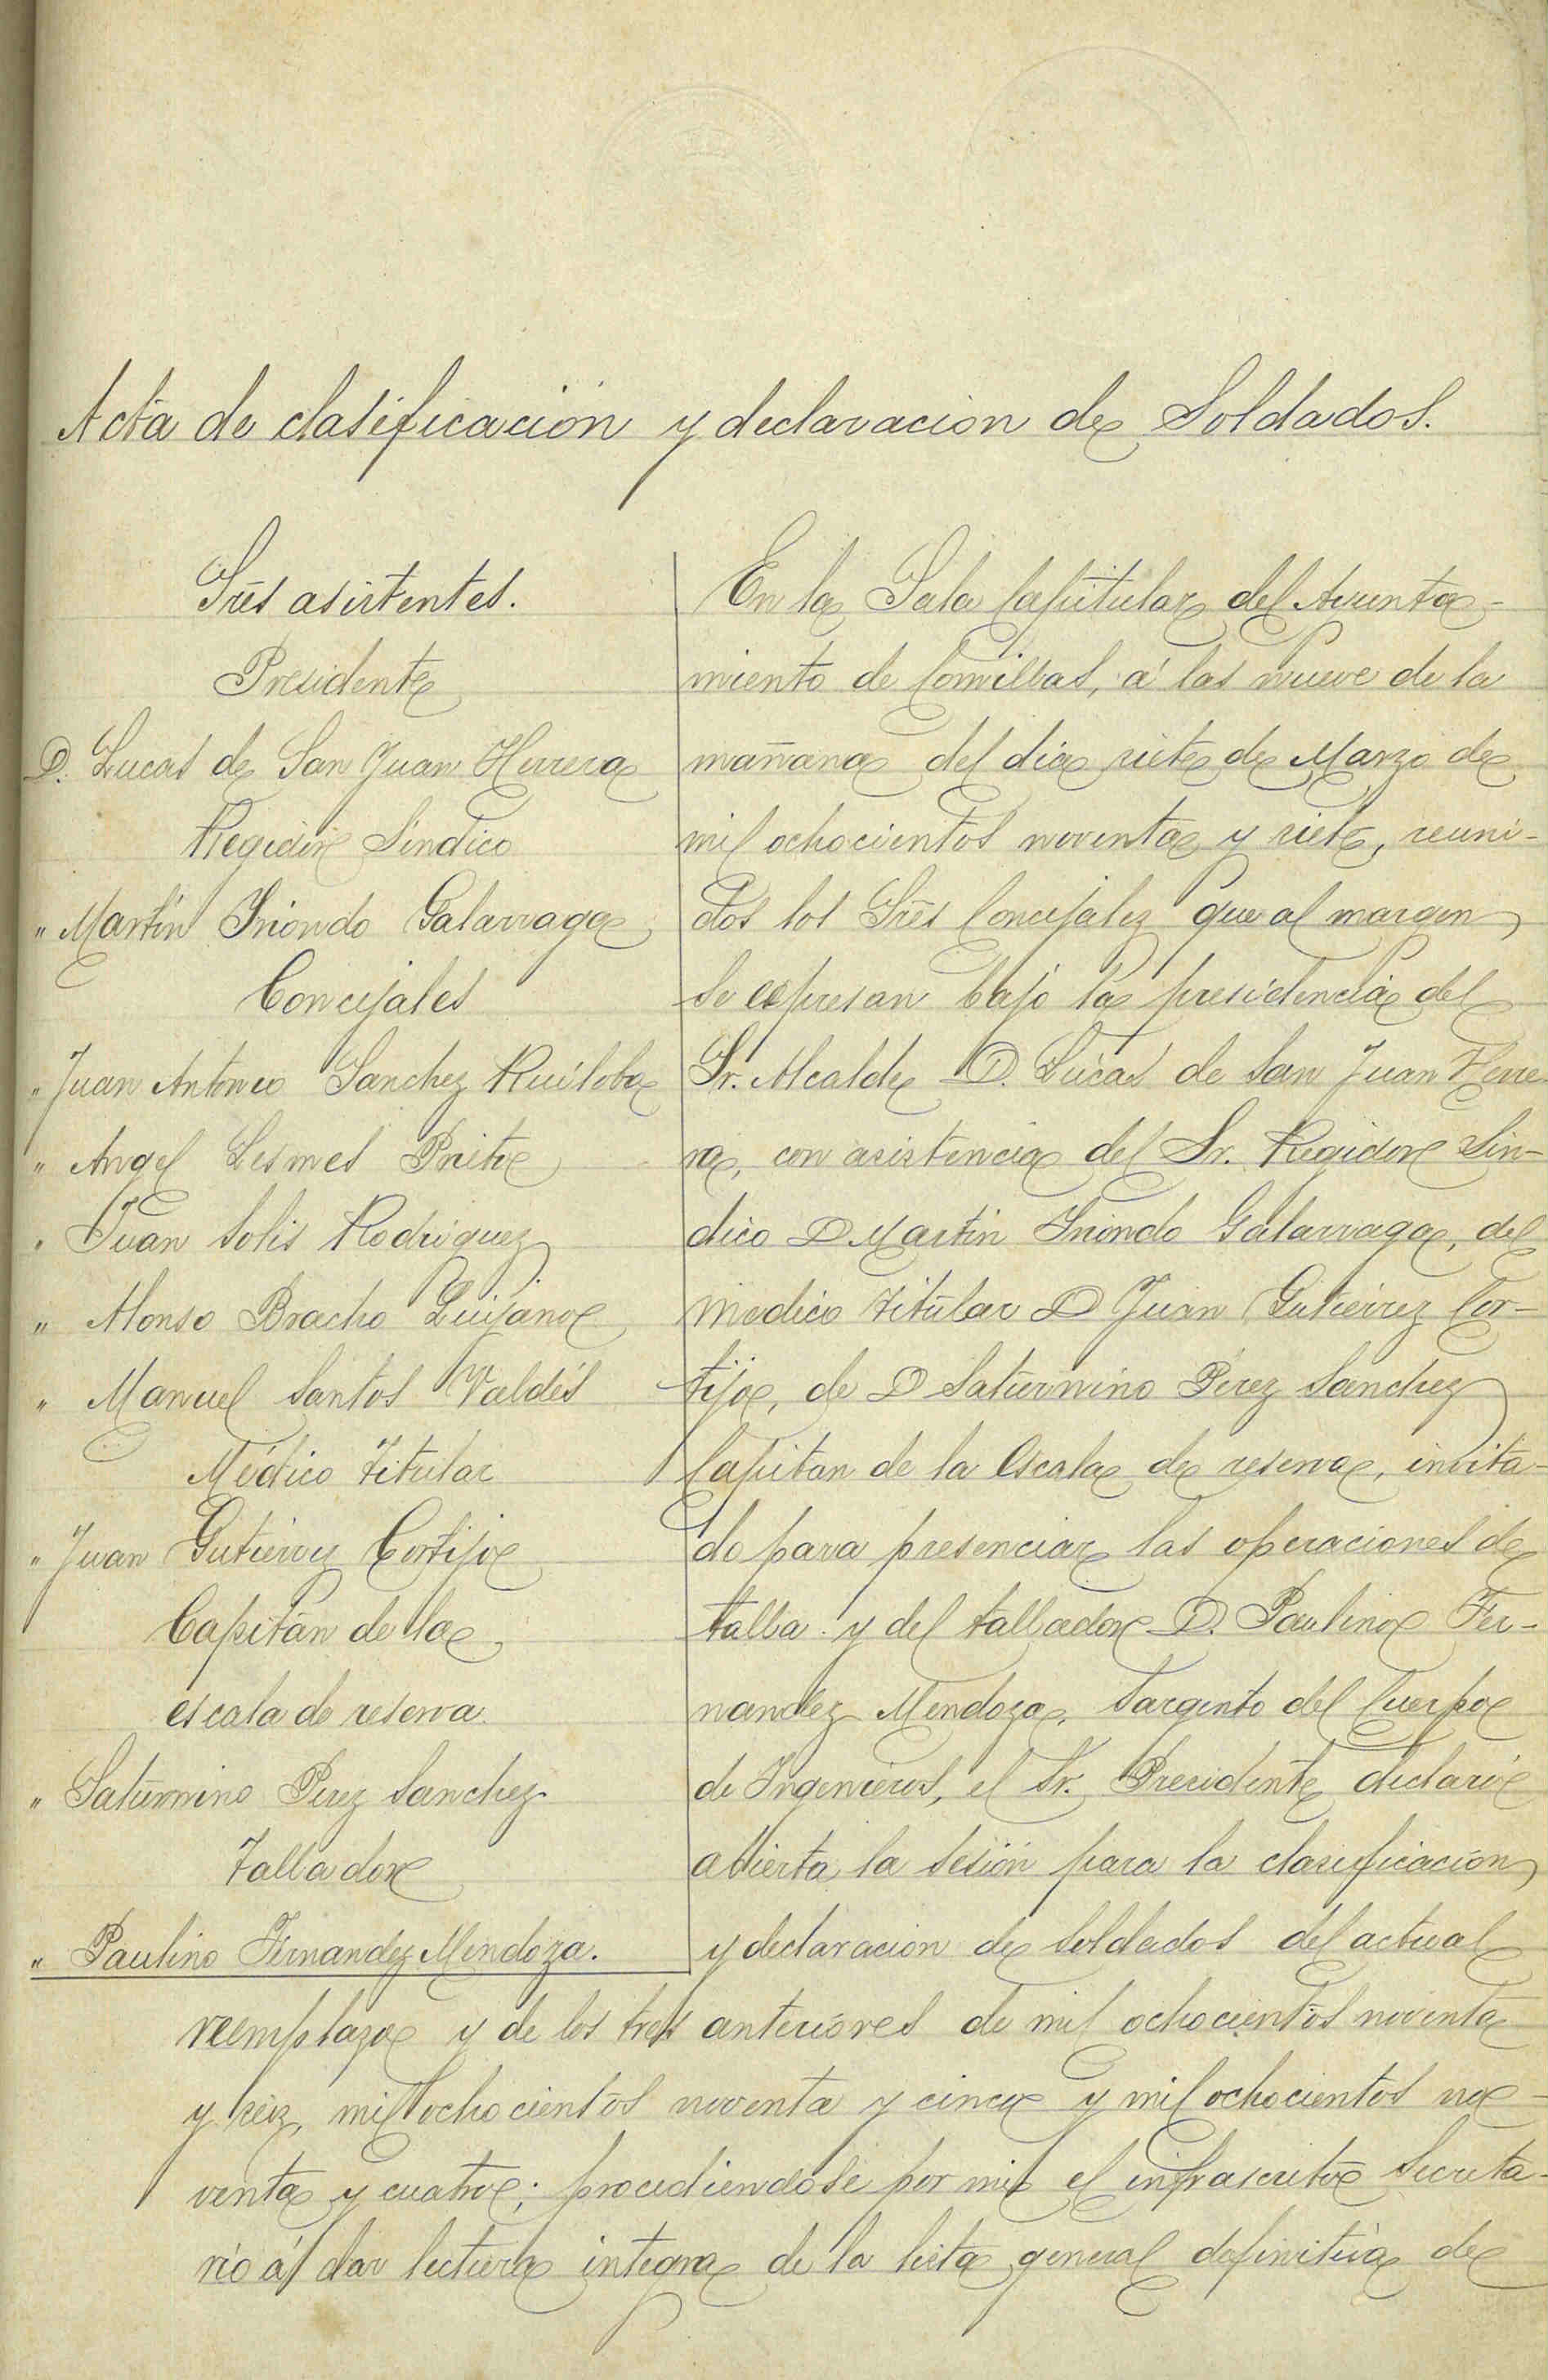 Acta de clasificación y declaracion de Soldados.
Sres asistentes.
Presidente
D. Lucas de San Juan Herrera
Regidor Síndico
" Martín Iriondo Galarraga
Concejales
" Juan Antonio Sanchez Ruiloba
" Angel Lesmes Prieto
" Juan Solis Rodriguez
" Alonso Bracho Quijano
" Manuel Santos Valdés
Médico titular
" Juan Gutierrez Cortijo
Capitán de la
escala de reserva.
" Saturnino Perez Sanchez
Tallador
" Paulino Fernandez Mendoza.
En la Sala Capitular del Ayunta-
miento de Comillas, á las nueve de la
mañana del día siete de Marzo de
mil ochocientos noventa y siete, reuni-
dos los Sres Concejalez que al margen
se espresan bajo la presidencia del
Sr. Alcalde D. Lucas de San Juan Herre-
ra, con asistencia del Sr. Regidor Sín-
dico D Martín Iriondo Galarraga, del
medico titular D Juan Gutierrez Cor-
tijo, de D Saturnino Pérez Sanchez
Capitan de la Escala de reserva, invita-
do para presenciar las operaciones de
talla y del tallador D. Paulino Fer-
nandez Mendoza, Sargento del Cuerpo
de Ingenieros, el Sr. Presidente declaró
abierta la sesión para la clasificacion
y declaracion de soldados del actual
reemplazo y de los tres anteriores de mil ochocientos noventa
y seiz, mil ochocientos noventa y cinco y mil ochocientos no-
venta y cuatro; procediendose por mi el infrascrito Secreta-
rio á dar lectura integra de la lista general definitiva de